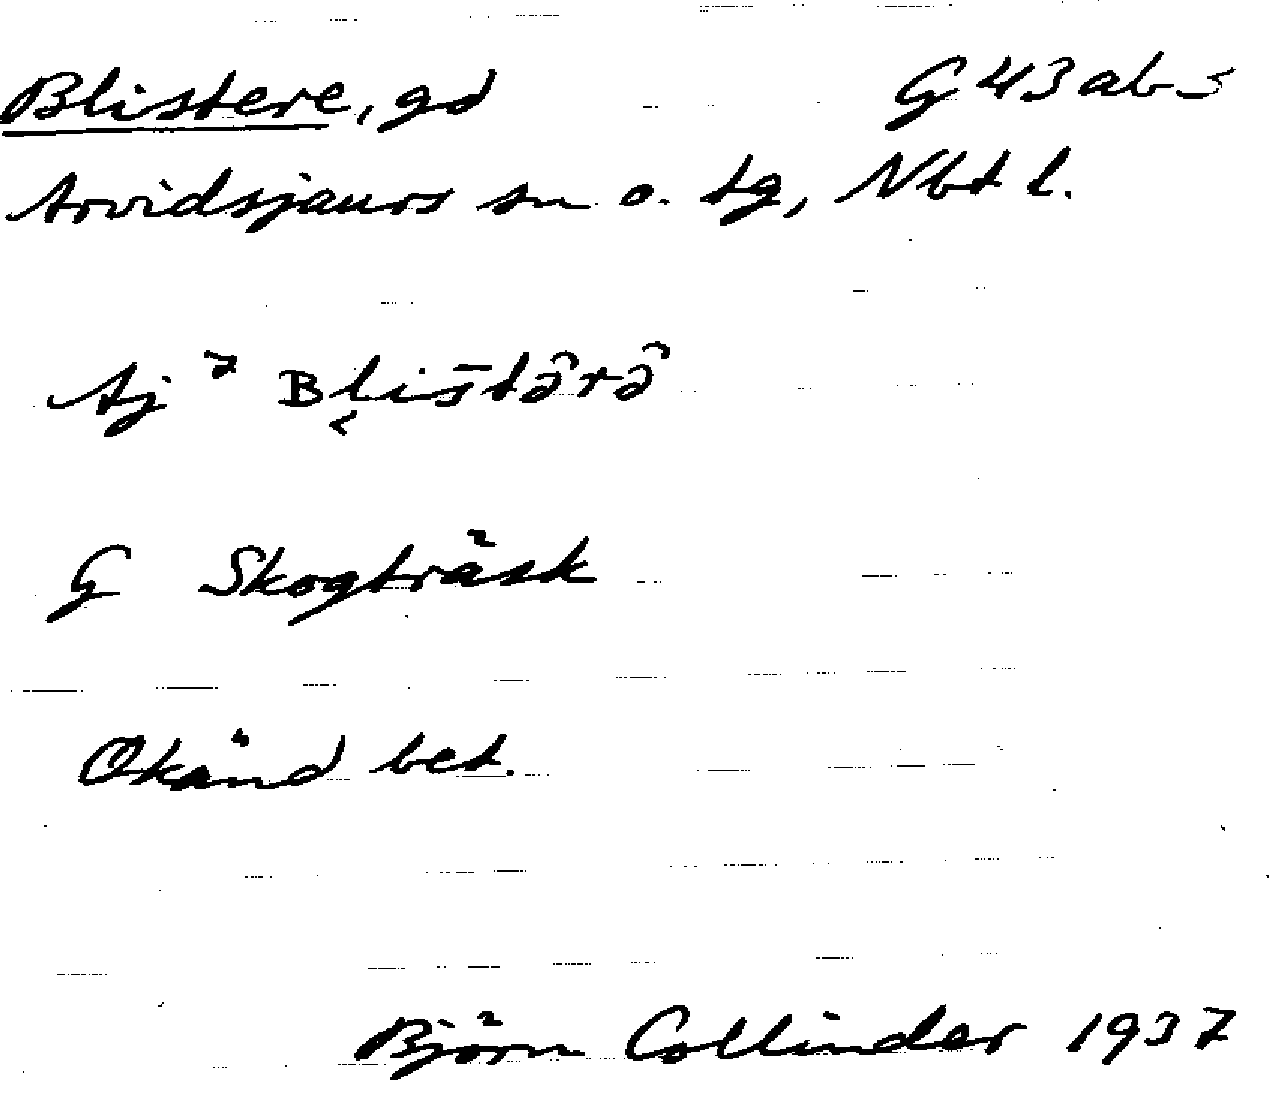 Blistere, gd G 43 ab s
Arvidsjaurs sn o. tg, Nbt l.
Aj ʾ Bl̬is̄tə̑rə̑
G Skogträsk
Okänd bet.
Björn Collinder 1937